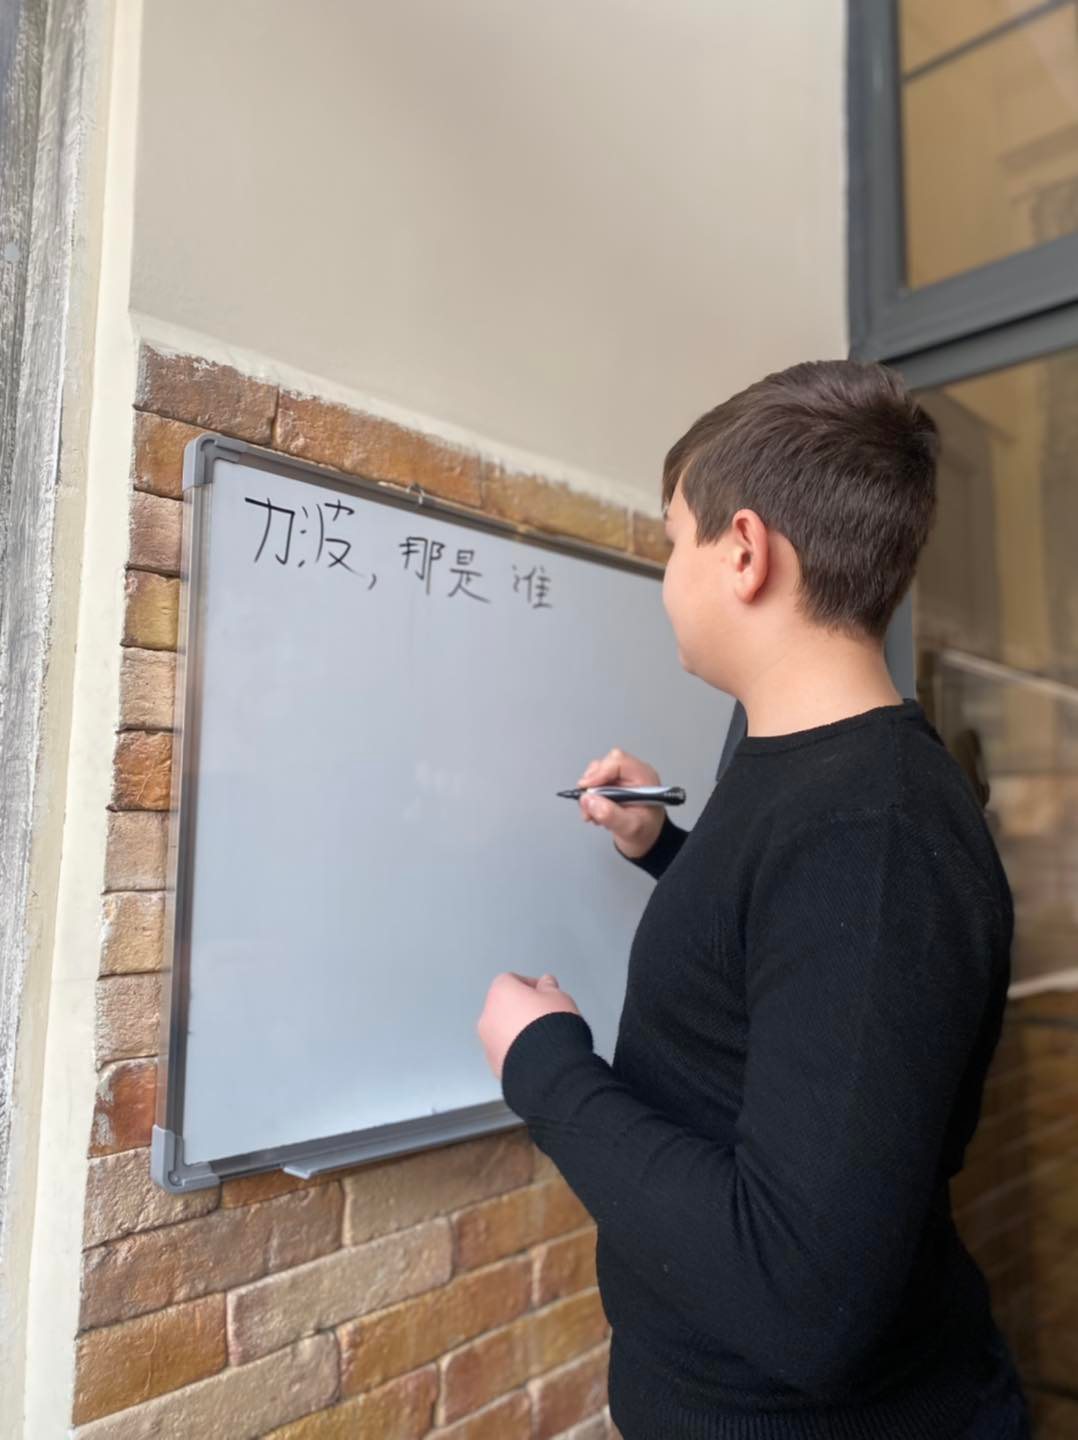 力波, 那是 谁